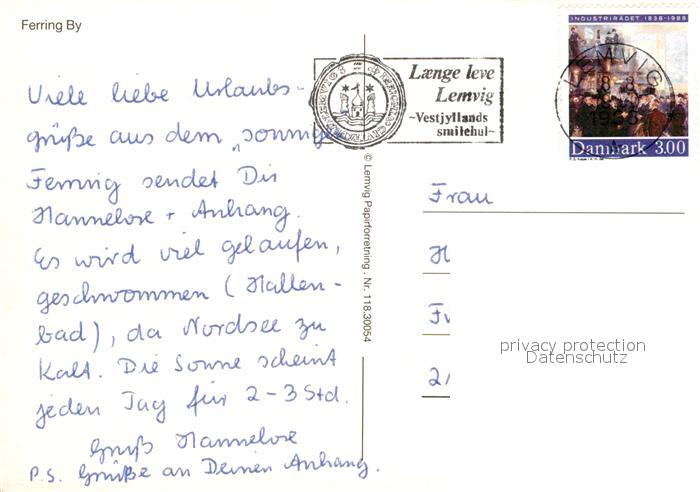 Ferring By
INDUSTRIRÅDET 1838-1988
Længe leve
Lemvig
~Vestjyllands
smilehul~
LEMVIG
Danmark 3.00
Viele liebe Urlaubs-
grüße aus dem „sonnigen
Ferring sendet Dir
Hannelore + Anhang.
Es wird viel gelaufen,
geschwommen (Hallen-
bad), da Nordsee zu
Kalt. Die Sonne scheint
jeden Tag für 2-3 Std.
Gruß Hannelore
P.S. Grüße an Deinen Anhang.
© Lemvig Papirforretning . Nr. 118.30054
Frau
privacy protection
Datenschutz